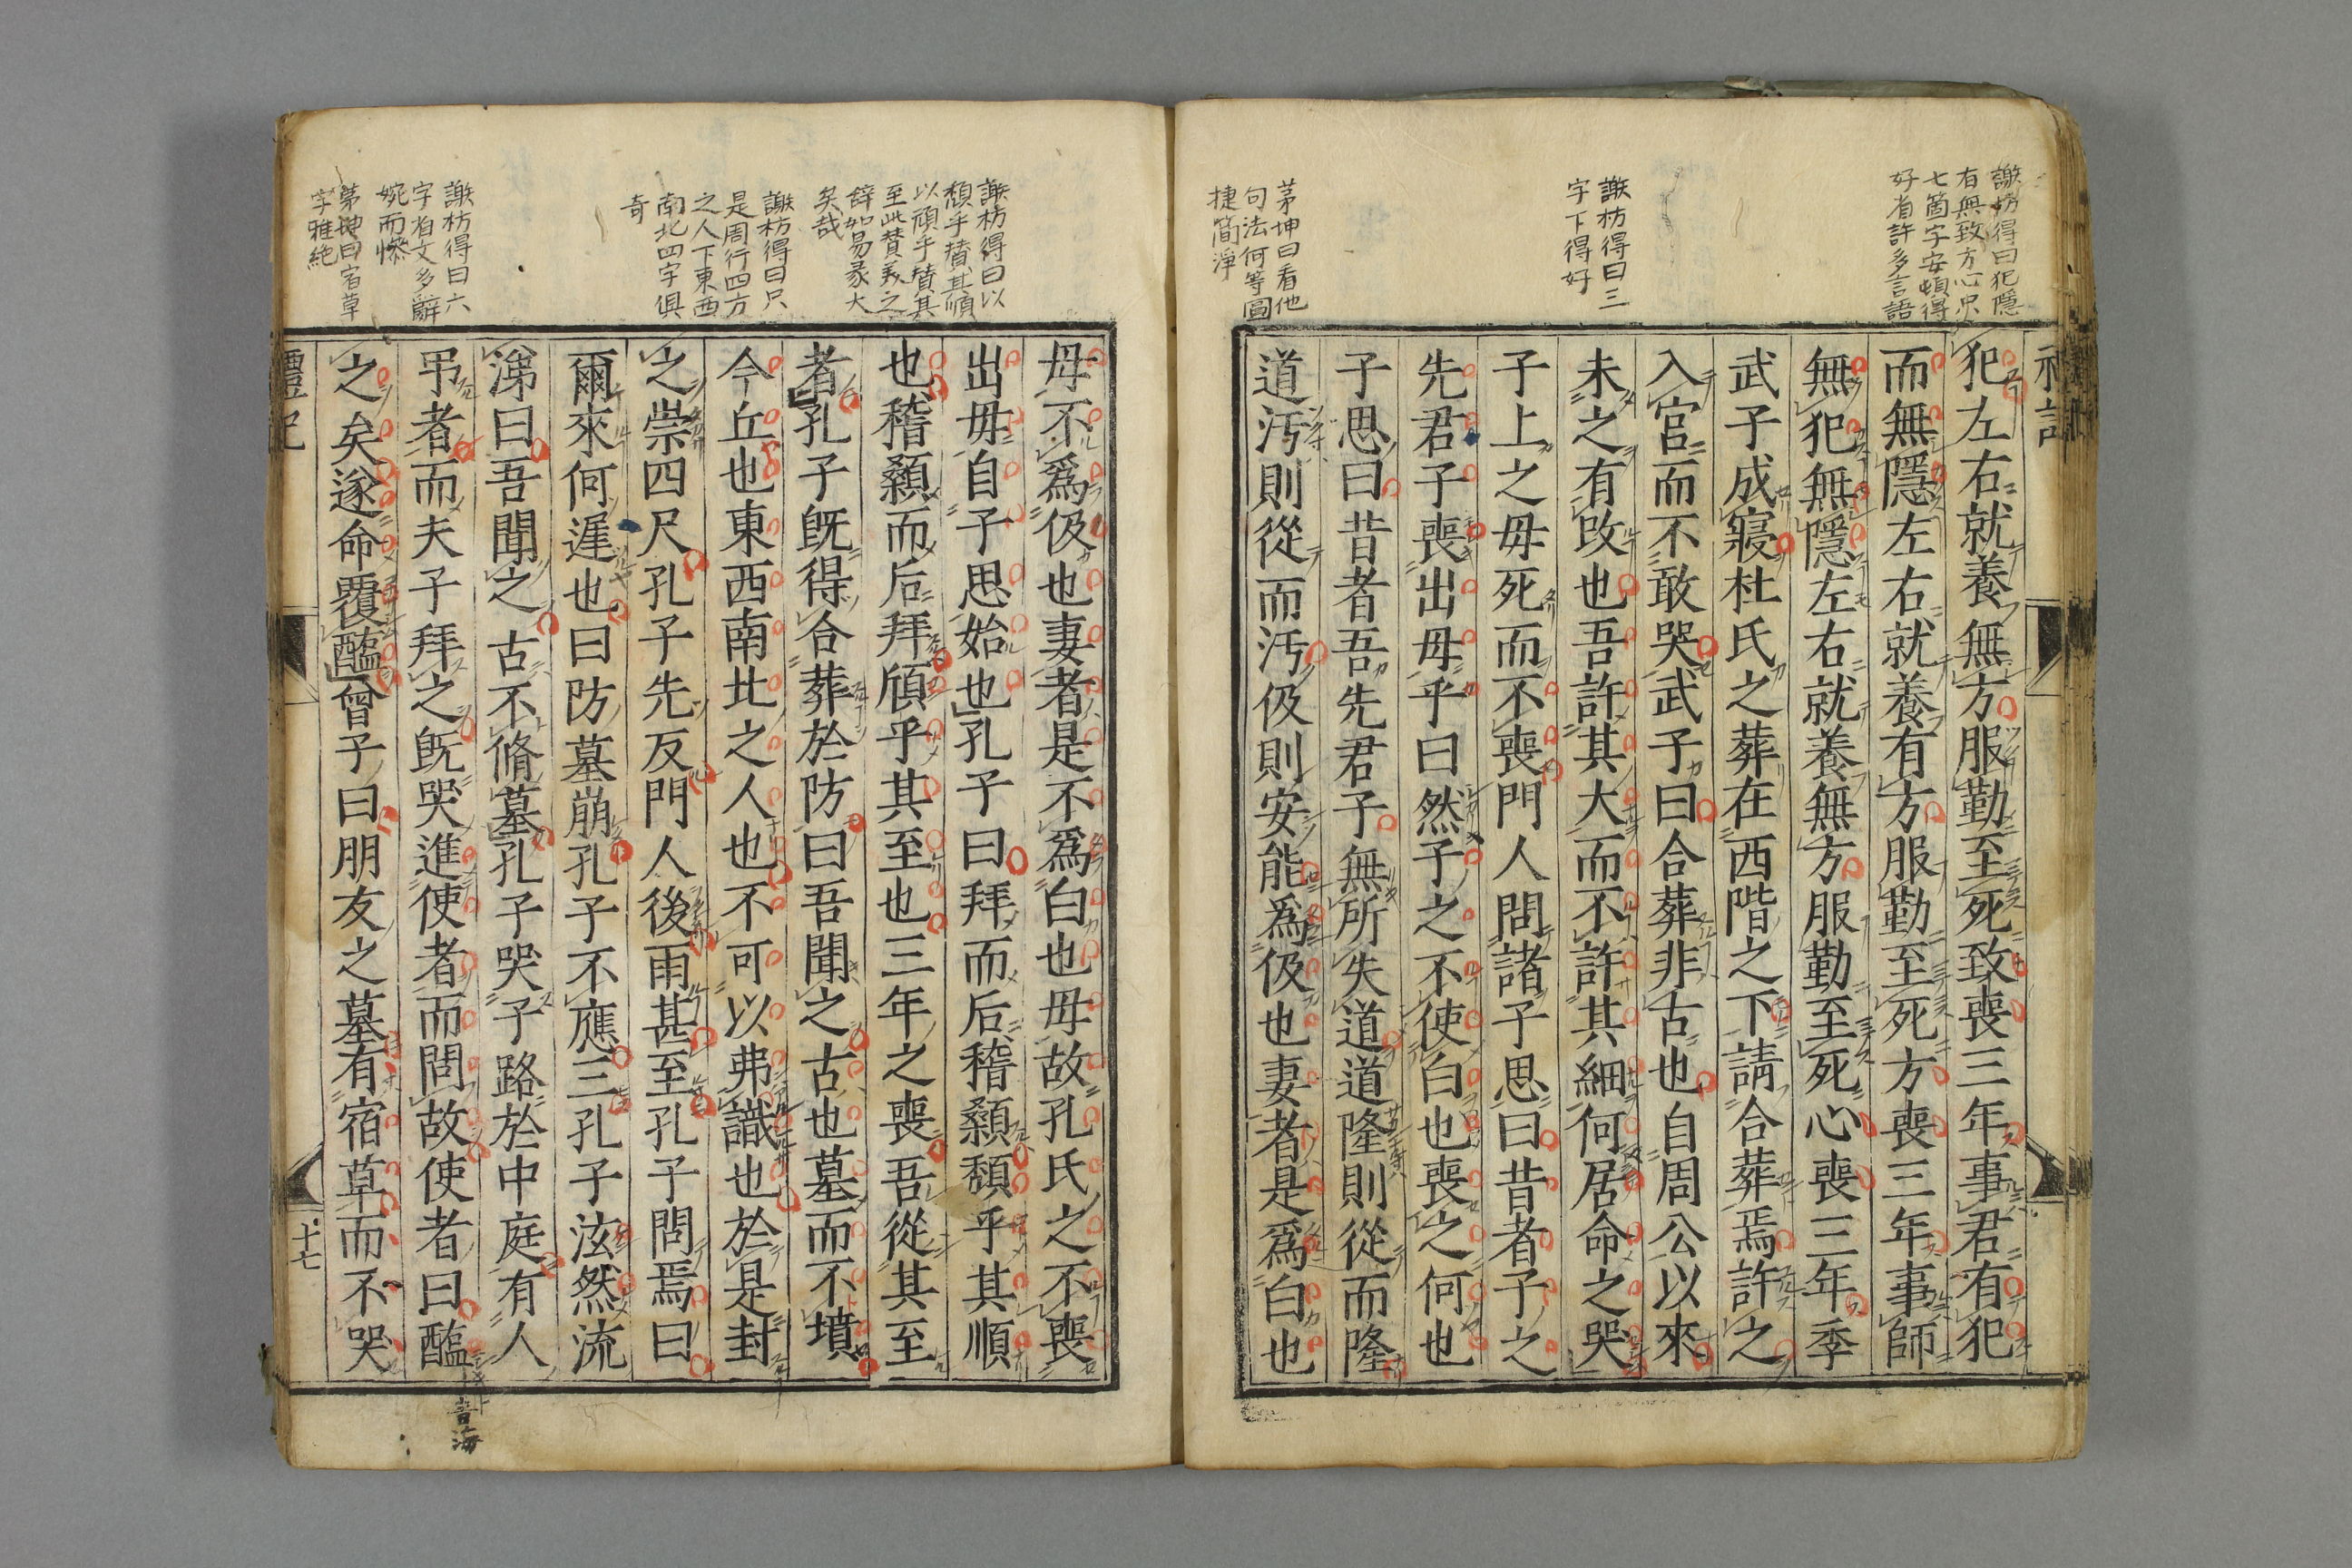 謝枋得曰犯隱
有無致方心只
七箇字安頓得
好省許多言語
謝枋得曰三
字下得好
茅坤曰看他
句法何等圓
捷簡淨
犯左右就養無方服勤至死致喪三年事君有犯
而無隱左右就養有方服勤至死方喪三年事師
無犯無隱左右就養無方服勤至死心喪三年季
武子成寢杜氏之葬在西階之下請合葬焉許之
入宮而不敢哭武子曰合葬非古也自周公以來
未之有改也吾許其大而不許其細何居命之哭
子上之母死而不喪門人問諸子思曰昔者子之
先君子喪出母乎曰然子之不使白也喪之何也
子思曰昔者吾先君子無所失道道隆則從而隆
道汚則從而汚伋則安能爲伋也妻者是爲白也
謝枋得曰以
頹乎賛其順
以頎乎賛其
至此賛美之
辝如易彖大
矣哉
謝枋得曰只
是周行四方
之人下東西
南北四字俱
奇
謝枋得曰六
字省文多辭
婉而慘
茅坤曰宿草
字雅絶
母不爲伋也妻者是不爲白也母故孔氏之不喪
出母自子思始也孔子曰拜而后稽顙頹乎其順
也稽顙而后拜頎乎其至也三年之喪吾從其至
者孔子旣得合葬於防曰吾聞之古也墓而不墳
今丘也東西南北之人也不可以弗識也於是封
之崇四尺孔子先反門人後雨甚至孔子問焉曰
爾來何遲也曰防墓崩孔子不應三孔子泫然流
涕曰吾聞之古不脩墓孔子哭子路於中庭有人
弔者而夫子拜之旣哭進使者而問故使者曰醢
音海
之矣遂命覆醢曾子曰朋友之墓有宿草而不哭
禮記
十七